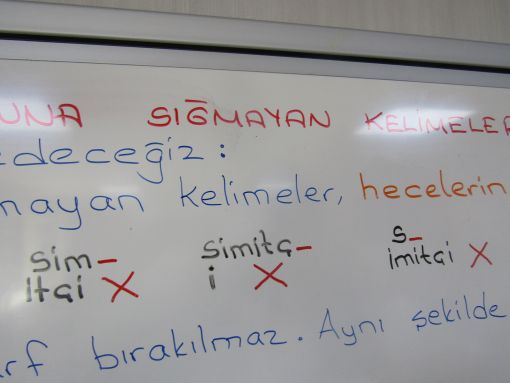 UNA SIĞMAYAN KELİMELER
edeceğiz :
mayan kelimeler, hecelerin
Sim- Simitç- S-
itçi X i X imitçi X
arf bırakılmaz. Aynı şekilde